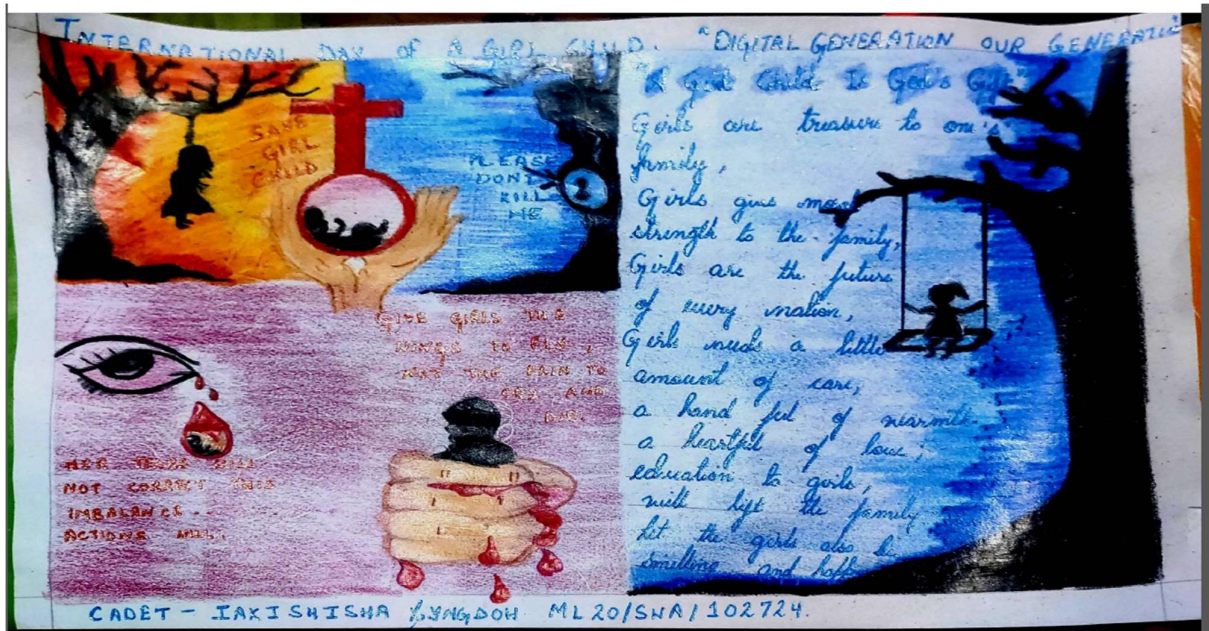 INTERNATIONAL DAY OF A GIRL CHILD. "DIGITAL GENERATION OUR GENERATION
SAVE
GIRL
CHILD
PLEASE
DONT
KILL
ME
GIVE GIRLS THE
WINGS TO FLY,
NOT THE PAIN TO
CRY AND
DIE.
HER TEARS WILL
NOT CORRECT THIS
IMBALANCE...
ACTIONS WILL.
"A Girl Child Is God's Gift"
Girls are treasure to one's
family,
Girls gives
strength to the family,
Girls are the future
of every nation,
Girls needs a little
amount of care,
a hand ful of
a heartful of love,
education to girls,
will lift the family
let the girls also be
smelling and
CADET - IAXISHISHA LYNGDOH ML20/SWA/102724.